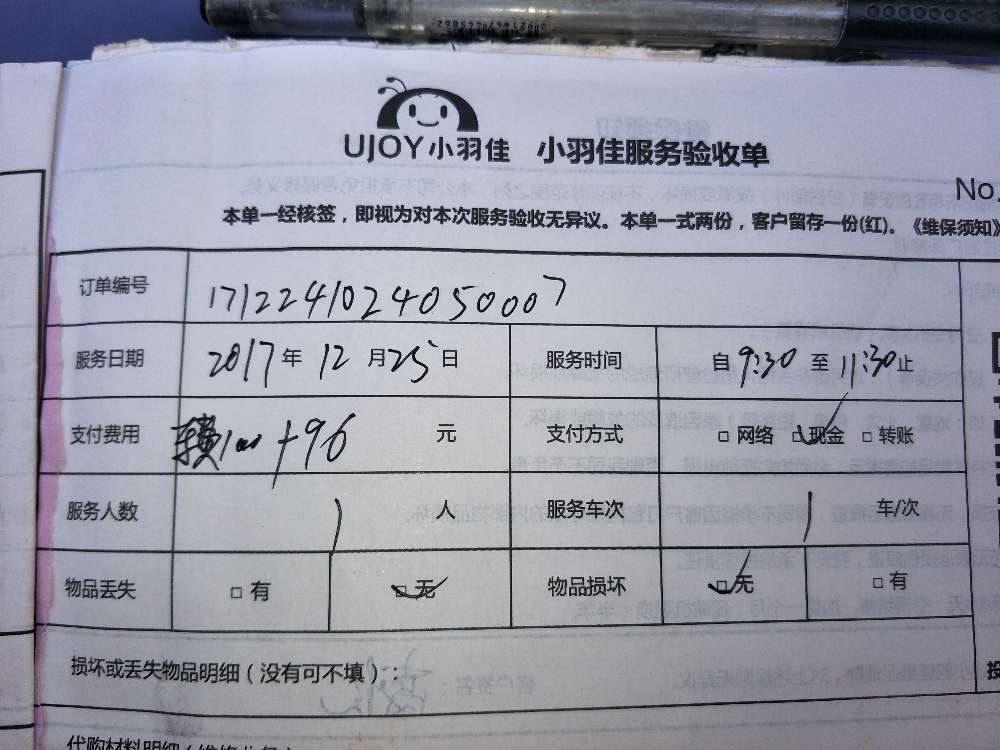 UJOY小羽佳 小羽佳服务验收单
No.
本单一经核签，即视为对本次服务验收无异议。本单一式两份，客户留存一份(红)。《维保须知》
订单编号 1712241024050007
服务日期 2017年12月25日 服务时间 自9:30至11:30止
支付费用 100+96 元 支付方式 □网络 □现金 □转账
服务人数 1 人 服务车次 1 车/次
物品丢失 □有 □无 物品损坏 □无 □有
损坏或丢失物品明细（没有可不填）：
代购材料明细